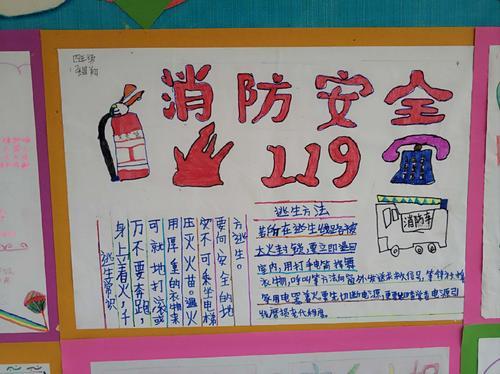 消防安全
119
逃生方法
若所在逃生线路被
大火封锁,要立即退回
室内,用打手电筒,挥舞
衣物,呼叫等方法向窗外发送求救信号,等待救援
家用电器着火要先切断电源
消防车
逃生常识
身上着火,千
万不要奔跑,
可就地打滚或
用厚重的衣物
压灭火苗。遇火
灾不可乘坐电梯
要向安全的地
方逃生。